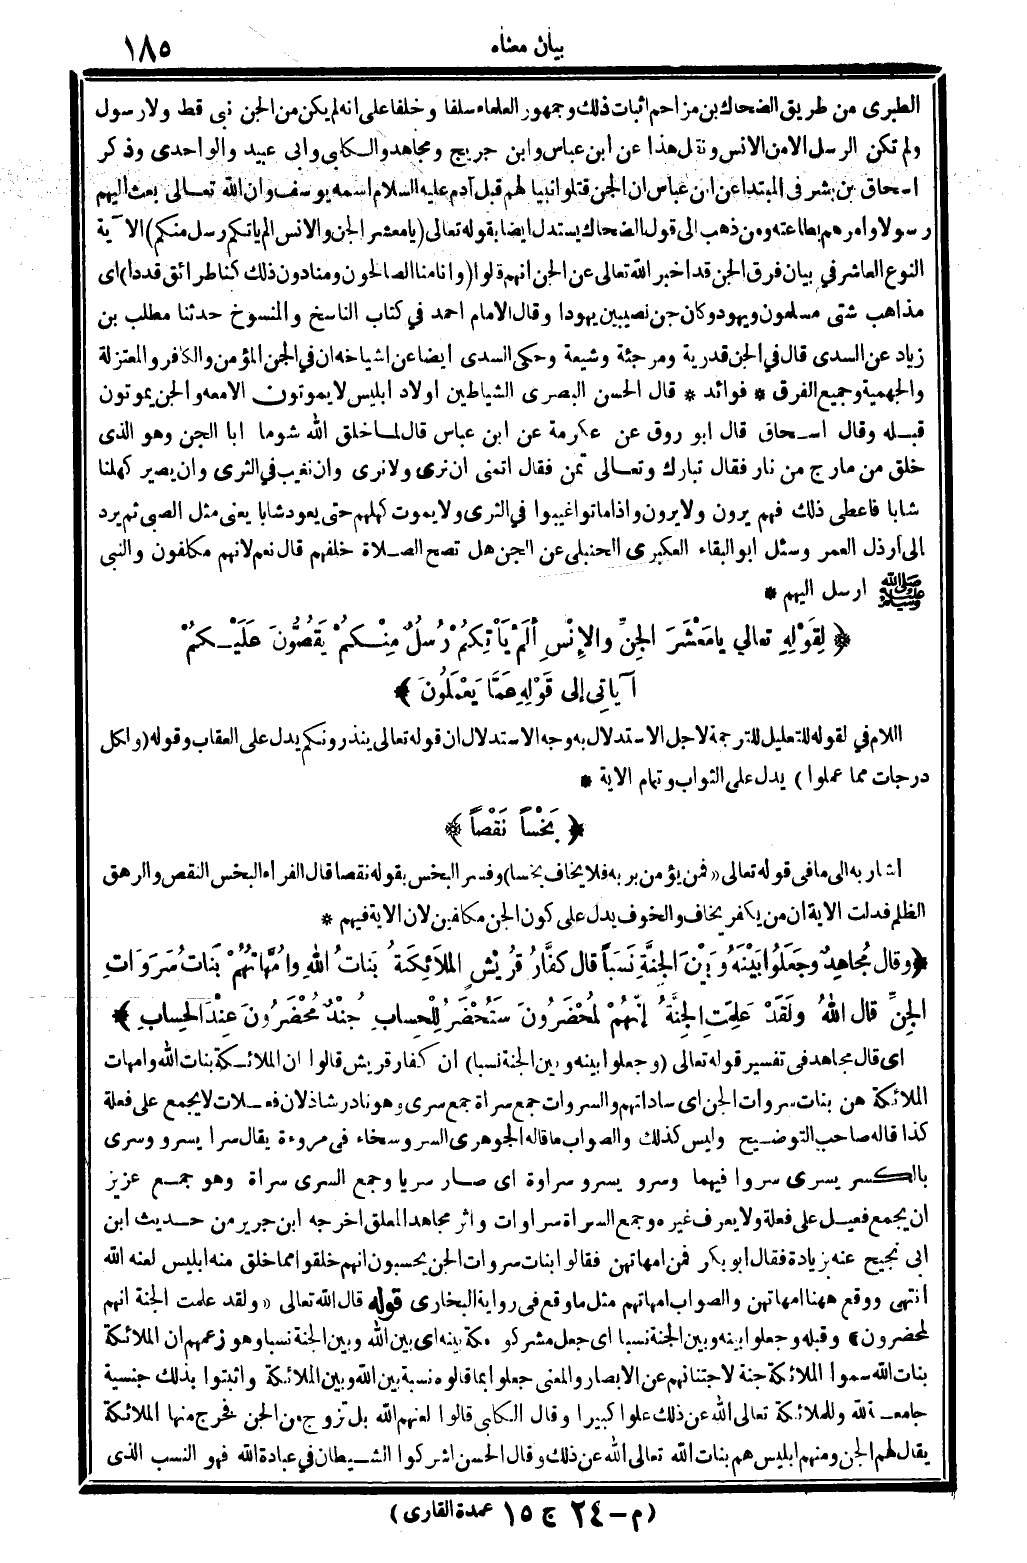 بيان معناه
١٨٥
الطبرى من طريق الضحاك بن مزاحم اثبات ذلك وجمهور العلماء سلفا وخلفا على انه لم يكن من الجن نبى قط ولا رسول
ولم تكن الرسل الا من الانس ونقل هذا عن ابن عباس وابن جريج ومجاهد والكلبى وابى عبيد والواحدى وذكر
اسحاق بن بشر فى المبتدا عن ابن عباس ان الجن قتلوا نبيا لهم قبل آدم عليه السلام اسمه يوسف وان الله تعالى بعث اليهم
رسولا وامرهم بطاعته ومن ذهب الى قول الضحاك يستدل ايضا بقوله تعالى (يا معشر الجن والانس الم ياتكم رسل منكم) الآية
النوع العاشر في بيان فرق الجن قد اخبر الله تعالى عن الجن انهم قالوا (وانا منا الصالحون ومنا دون ذلك كنا طرائق قددا) اى
مذاهب شتى مسلمون ويهود وكان جن نصيبين يهودا وقال الامام احمد في كتاب الناسخ والمنسوخ حدثنا مطلب بن
زياد عن السدى قال في الجن قدرية ومرجئة وشيعة وحكى السدى ايضا عن اشياخه ان في الجن المؤمن والكافر والمعتزلة
والجهمية وجميع الفرق * فوائد * قال الحسن البصرى الشياطين اولاد ابليس لا يموتون الا معه والجن يموتون
قبله وقال اسحاق قال ابو روق عن عكرمة عن ابن عباس قال لما خلق الله شوما ابا الجن وهو الذى
خلق من مارج من نار فقال تبارك وتعالى تمن فقال اتمنى ان نرى ولا نرى وان نغيب في الثرى وان يصير كهلنا
شابا فاعطى ذلك فهم يرون ولا يرون واذا ماتوا غيبوا في الثرى ولا يموت كهلهم حتى يعود شابا يعنى مثل الصبى ثم يرد
الى ارذل العمر وسئل ابو البقاء العكبرى الحنبلى عن الجن هل تصح الصلاة خلفهم قال نعم لانهم مكلفون والنبى
ﷺ ارسل اليهم *
﴿ لِقَوْلِهِ تعالي يا مَعْشَرَ الجِنِّ والإِنْسِ ألَمْ يَأْتِكُمْ رُسُلٌ مِنْكُمْ يَقُصُّونَ عَلَيْكُمْ
آياتِي إلى قَوْلِهِ عَمَّا يَعْمَلُونَ ﴾
اللام في لقوله للتعليل للترجمة لاجل الاستدلال به وجه الاستدلال ان قوله تعالى ينذرونكم يدل على العقاب وقوله (ولكل
درجات مما عملوا) يدل على الثواب وتمام الاية *
﴿ بَخْساً نَقْصاً ﴾
اشار به الى ما فى قوله تعالى «فمن يؤمن بربه فلا يخاف بخسا) وفسر البخس بقوله نقصا قال الفراء البخس النقص والرهق
الظلم فدلت الاية ان من يكفر يخاف والخوف يدل على كون الجن مكلفين لان الاية فيهم *
﴿ وقال مُجاهِدٌ وجَعَلُوا بَيْنَهُ وبَيْنَ الجِنَّةِ نَسَباً قال كفَّارُ قُرَيْشٍ المَلاَئِكَةُ بَناتُ اللهِ وأُمَّهاتُهُمْ بَناتُ سَرَوَاتِ
الجِنِّ قال اللهُ ولَقَدْ عَلِمَتِ الجِنَّةُ إنَّهُمْ لَمُحْضَرُونَ سَتُحْضَرُ لِلْحِسابِ جُنْدٌ مُحْضَرُونَ عِنْدَ الحِسابِ ﴾
اى قال مجاهد فى تفسير قوله تعالى (وجعلوا بينه وبين الجنة نسبا) ان كفار قريش قالوا ان الملائكة بنات الله وامهات
الملائكة هن بنات سروات الجن اى ساداتهم والسروات جمع سراة جمع سرى وهو نادر شاذ لان فعلات لا يجمع على فعلة
كذا قاله صاحب التوضيح وليس كذلك والصواب ما قاله الجوهرى السرو سخاء فى مروءة يقال سرا يسرو وسرى
بالكسر يسرى سروا فيهما وسرو يسرو سراوة اى صار سريا وجمع السرى سراة وهو جمع عزيز
ان يجمع فعيل على فعلة ولا يعرف غيره وجمع السراة سراوات واثر مجاهد المعلق اخرجه ابن جرير من حديث ابن
ابى نجيح عنه بزيادة فقال ابو بكر فمن امهاتهن فقالوا بنات سروات الجن يحسبون انهم خلقوا مما خلق منه ابليس لعنه الله
انتهى ووقع ههنا امهاتهن والصواب امهاتهم مثل ما وقع فى رواية البخارى قوله قال الله تعالى «ولقد علمت الجنة انهم
لمحضرون» وقبله وجعلوا بينه وبين الجنة نسبا اى جعل مشركو مكة بينه اى بين الله وبين الجنة نسبا وهو زعمهم ان الملائكة
بنات الله سموا الملائكة جنة لاجتنانهم عن الابصار والمعنى جعلوا بما قالوه نسبة بين الله وبين الملائكة واثبتوا بذلك جنسية
جامعة لله وللملائكة تعالى الله عن ذلك علوا كبيرا وقال الكلبى قالوا لعنهم الله بل تزوج من الجن فخرج منها الملائكة
يقال لهم الجن ومنهم ابليس هم بنات الله تعالى الله عن ذلك وقال الحسن اشركوا الشيطان في عبادة الله فهو النسب الذى
(م - ٢٤ ج ١٥ عمدة القارى)